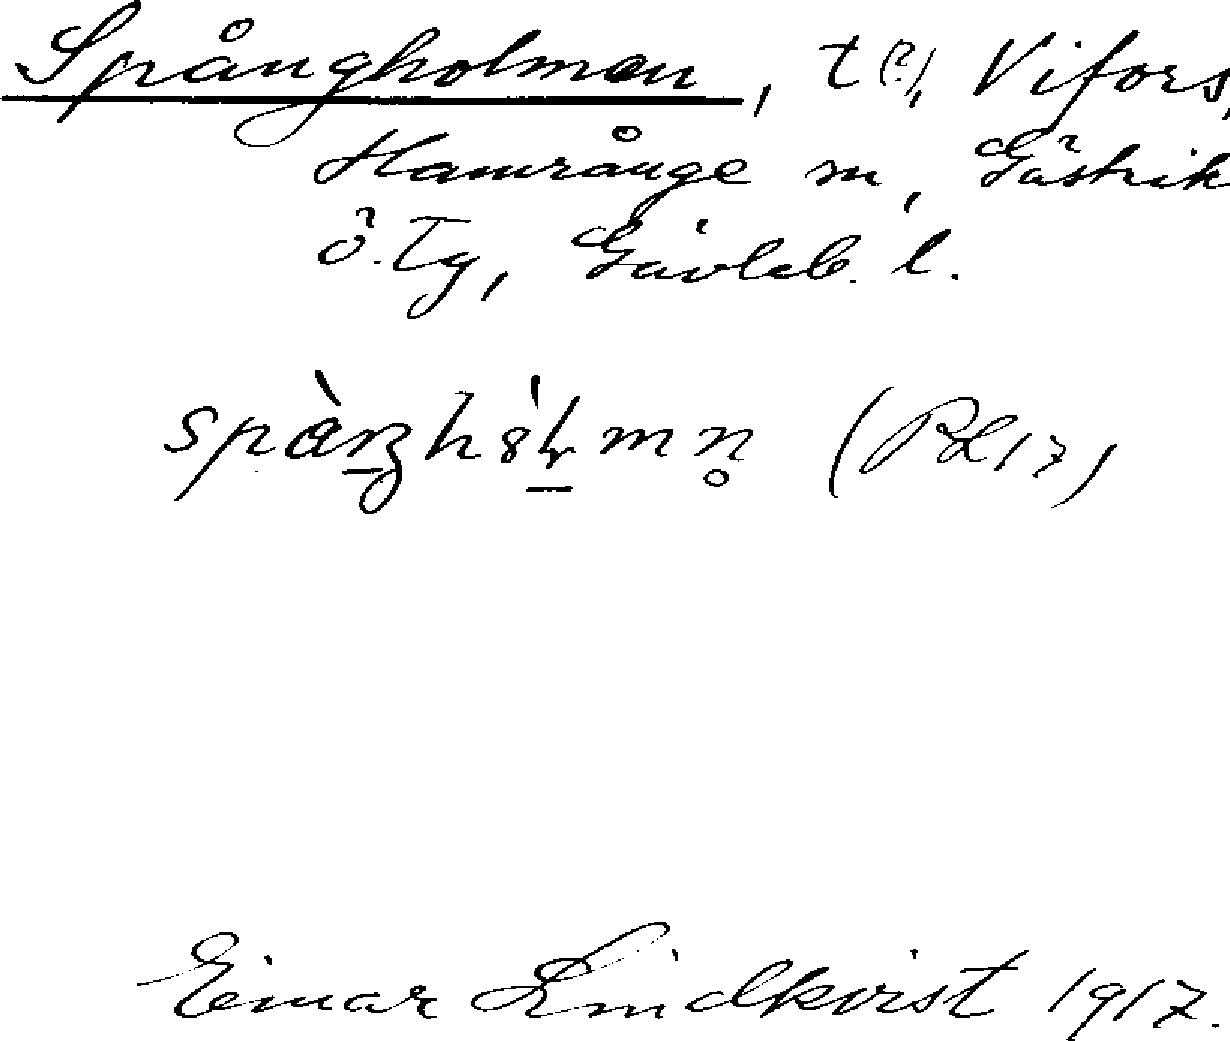 Spångholmen, t(?), Vifors,
Hamrånge sn, Gästrik
ö. Ty, Gävleb. l.
(PL17)
Einar Lindkvist 1917.